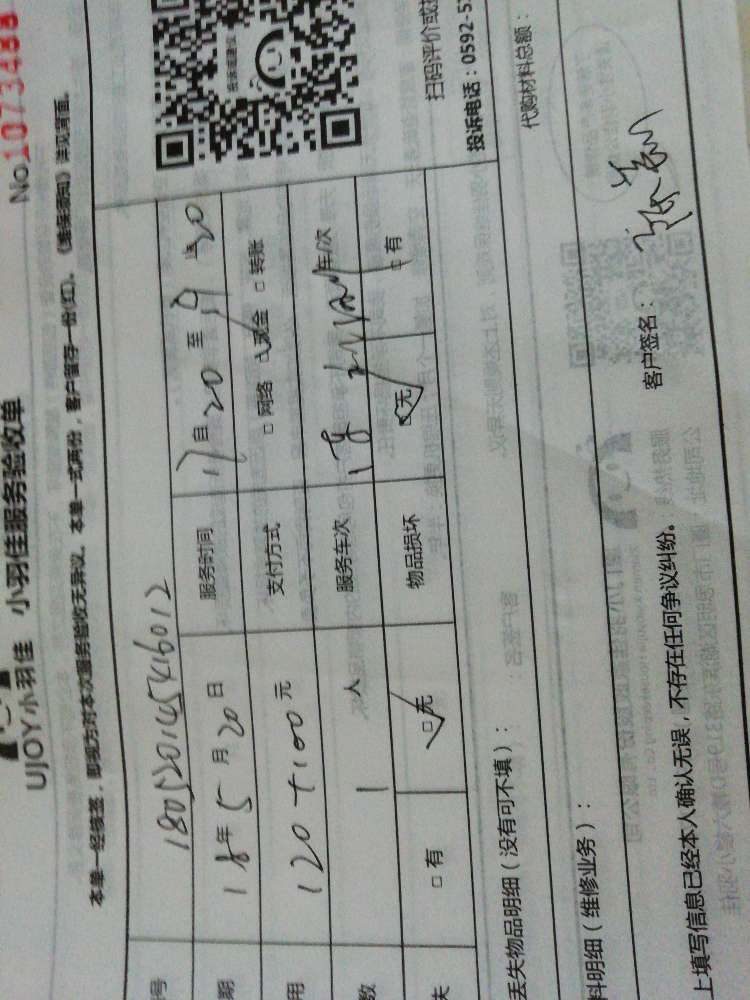 UJOY小羽佳 小羽佳服务验收单
No.1073488
本单一经核签，即视为对本次服务验收无异议。本单一式两份，客户留存一份（红）。《维保须知》详见背面。
号
期 18年5月20日 服务时间 17自20至19 20
用 120+100元 支付方式 □网络 ☑现金 □转账
数 1人 服务车次 车/次
失 □有 ☑无 物品损坏 ☑无 □有
扫码评价或
投诉电话：0592-5
丢失物品明细（没有可不填）：
代购材料总额：
料明细（维修业务）：
上填写信息已经本人确认无误，不存在任何争议纠纷。
客户签名：